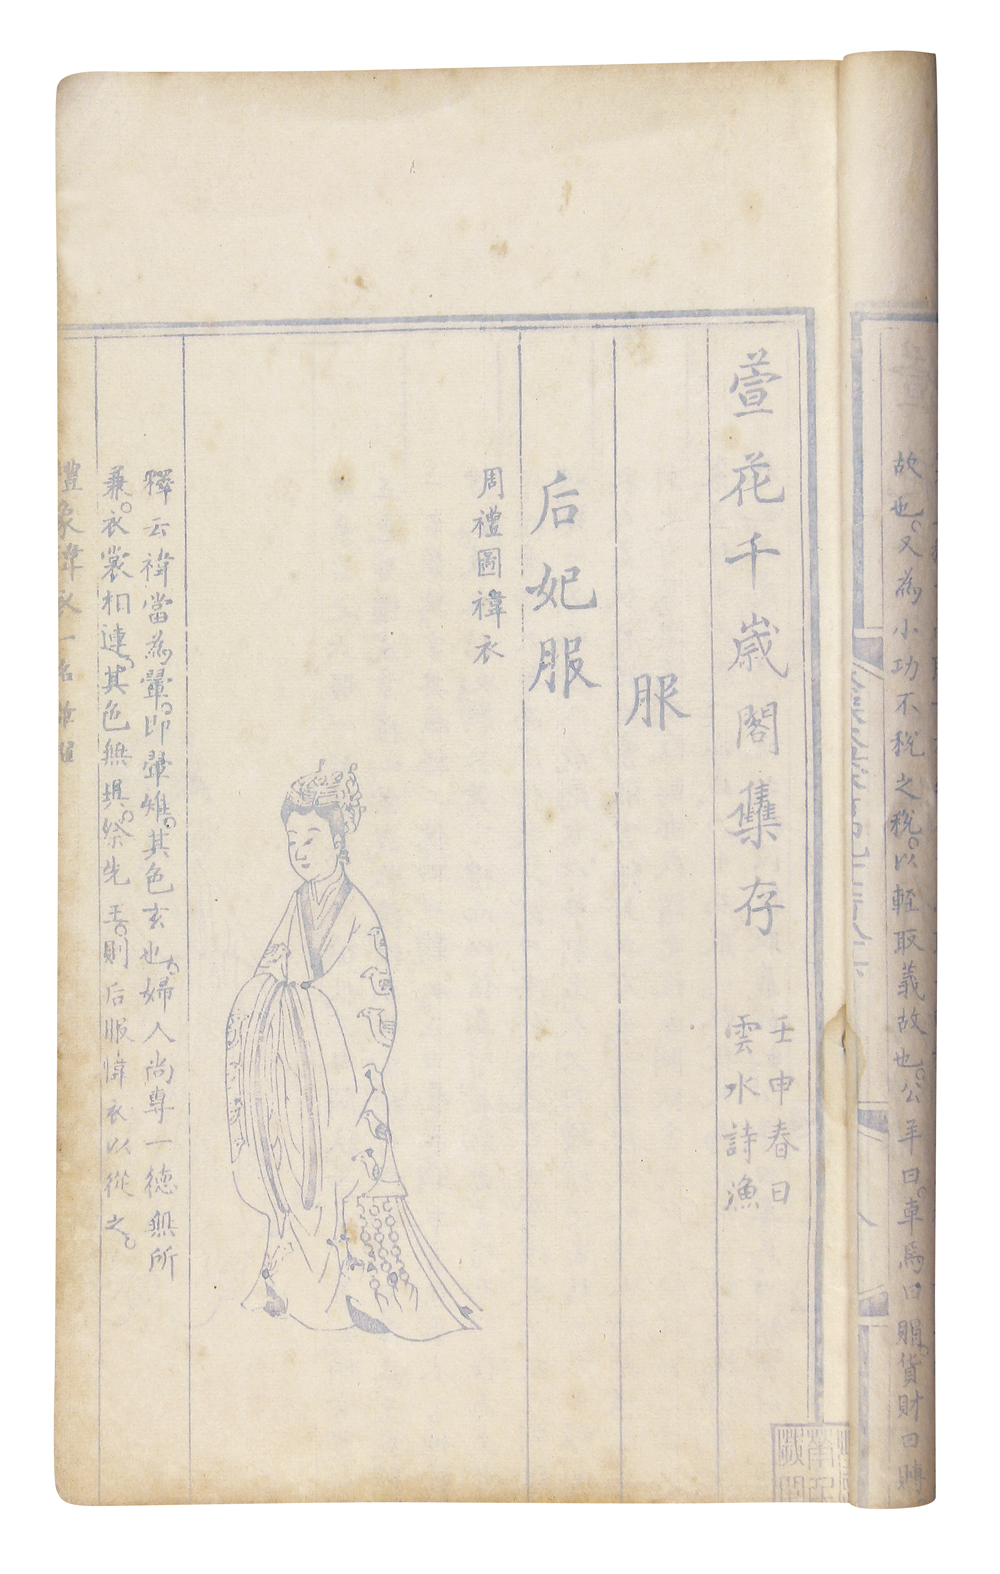 故也又為小功不稅之稅以輕取義故也公羊曰車馬曰賵貨財曰賻
萱花千歲閣集存
壬申春日
雲水詩漁
服
后妃服
周禮圖褘衣
釋云褘當為翬即翬雉其色玄也婦人尚專一德無所
兼衣裳相連其色無異祭先王則后服褘衣以從之